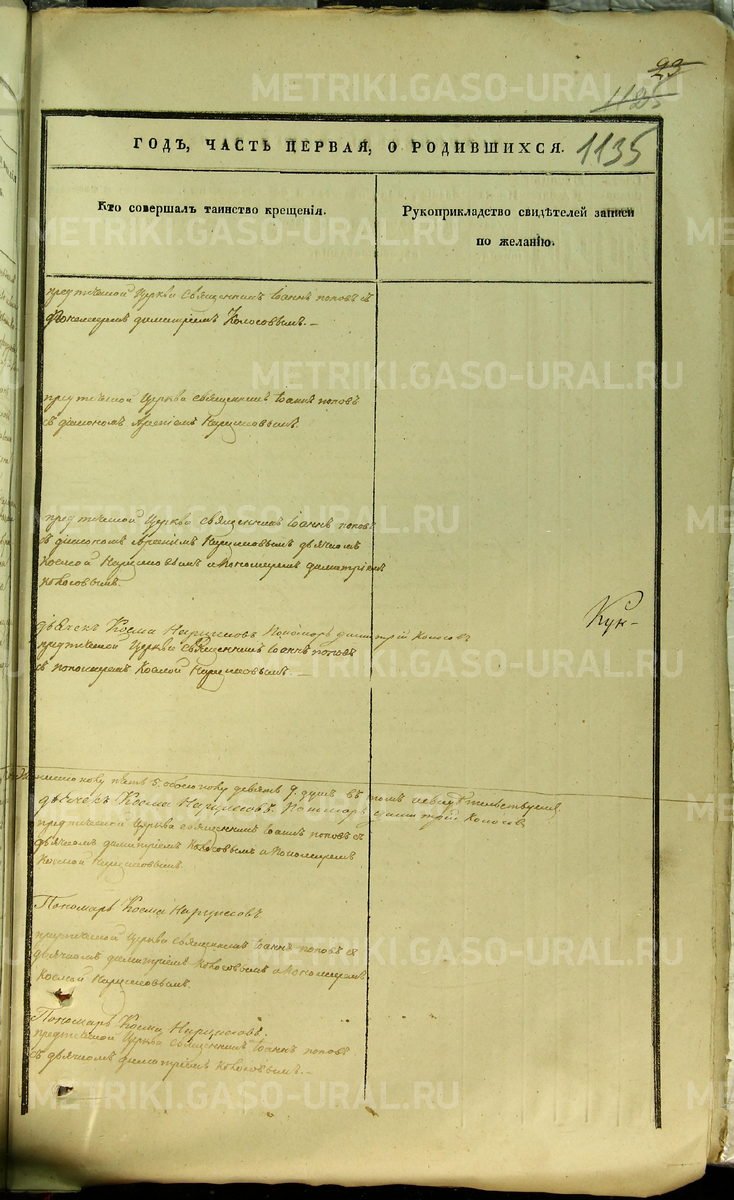 23
1135
ГОДЪ, ЧАСТЬ ПЕРВАЯ, О РОДИВШИХСЯ.
Кто совершалъ таинство крещенія.
Рукоприкладство свидѣтелей записи
по желанію.
предтечевой Церкви священникъ Іоаннъ поповъ съ
пономаремъ димитріемъ Колосовымъ.
предтечевой Церкви священникъ Іоаннъ поповъ
съ діакономъ Арсеніемъ Нарциссовымъ.
предтечевой Церкви священникъ Іоаннъ поповъ
съ діакономъ Арсеніемъ Нарциссовымъ дьячкомъ
Космой Нарциссовымъ и пономаремъ димитріемъ
Колосовымъ.
Кун-
дьячекъ Косма Нарциссовъ Пономарь димитрій Колосовъ
предтечевой Церкви священникъ Іоаннъ поповъ
съ пономаремъ Космой Нарциссовымъ.
полу пять 5. обоего полу девять 9. душъ въ томъ
дьячекъ Косма Нарциссовъ. Пономарь димитрій Колосовъ
предтечевой Церкви священникъ Іоаннъ поповъ съ
дьячкомъ димитріемъ Колосовымъ и пономаремъ
Космой Нарциссовымъ.
Пономарь Косма Нарциссовъ
предтечевой Церкви священникъ Іоаннъ поповъ съ
дьячкомъ димитріемъ Колосовымъ и пономаремъ
Космой Нарциссовымъ.
Пономарь Косма Нарциссовъ.
предтечевой Церкви священникъ Іоаннъ поповъ
съ дьячкомъ димитріемъ Колосовымъ.
METRIKI.GASO-URAL.RU